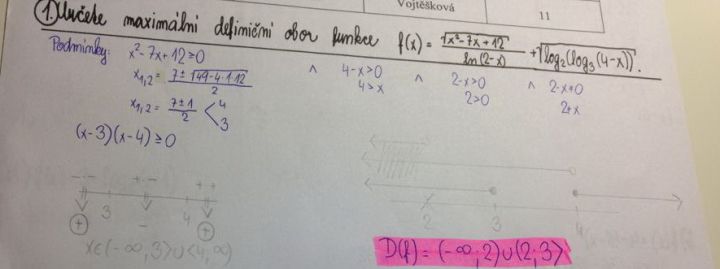 Vojtěšková
11
1. Určete maximální definiční obor funkce f(x) = √(x²-7x+12) / ln(2-x) + √(log₂(log₃(4-x))).
Podmínky: x²-7x+12≥0 ∧ 4-x>0 ∧ 2-x>0 ∧ 2-x≠0
x₁,₂ = (7±√(49-4·1·12)) / 2 4>x 2>0 2≠x
x₁,₂ = (7±1) / 2 < 4 3
(x-3)(x-4)≥0
-- +- ++
3 4
+ - +
2 3 4
x∈(-∞,3)∪<4,∞)
D(f) = (-∞;2)∪(2;3>